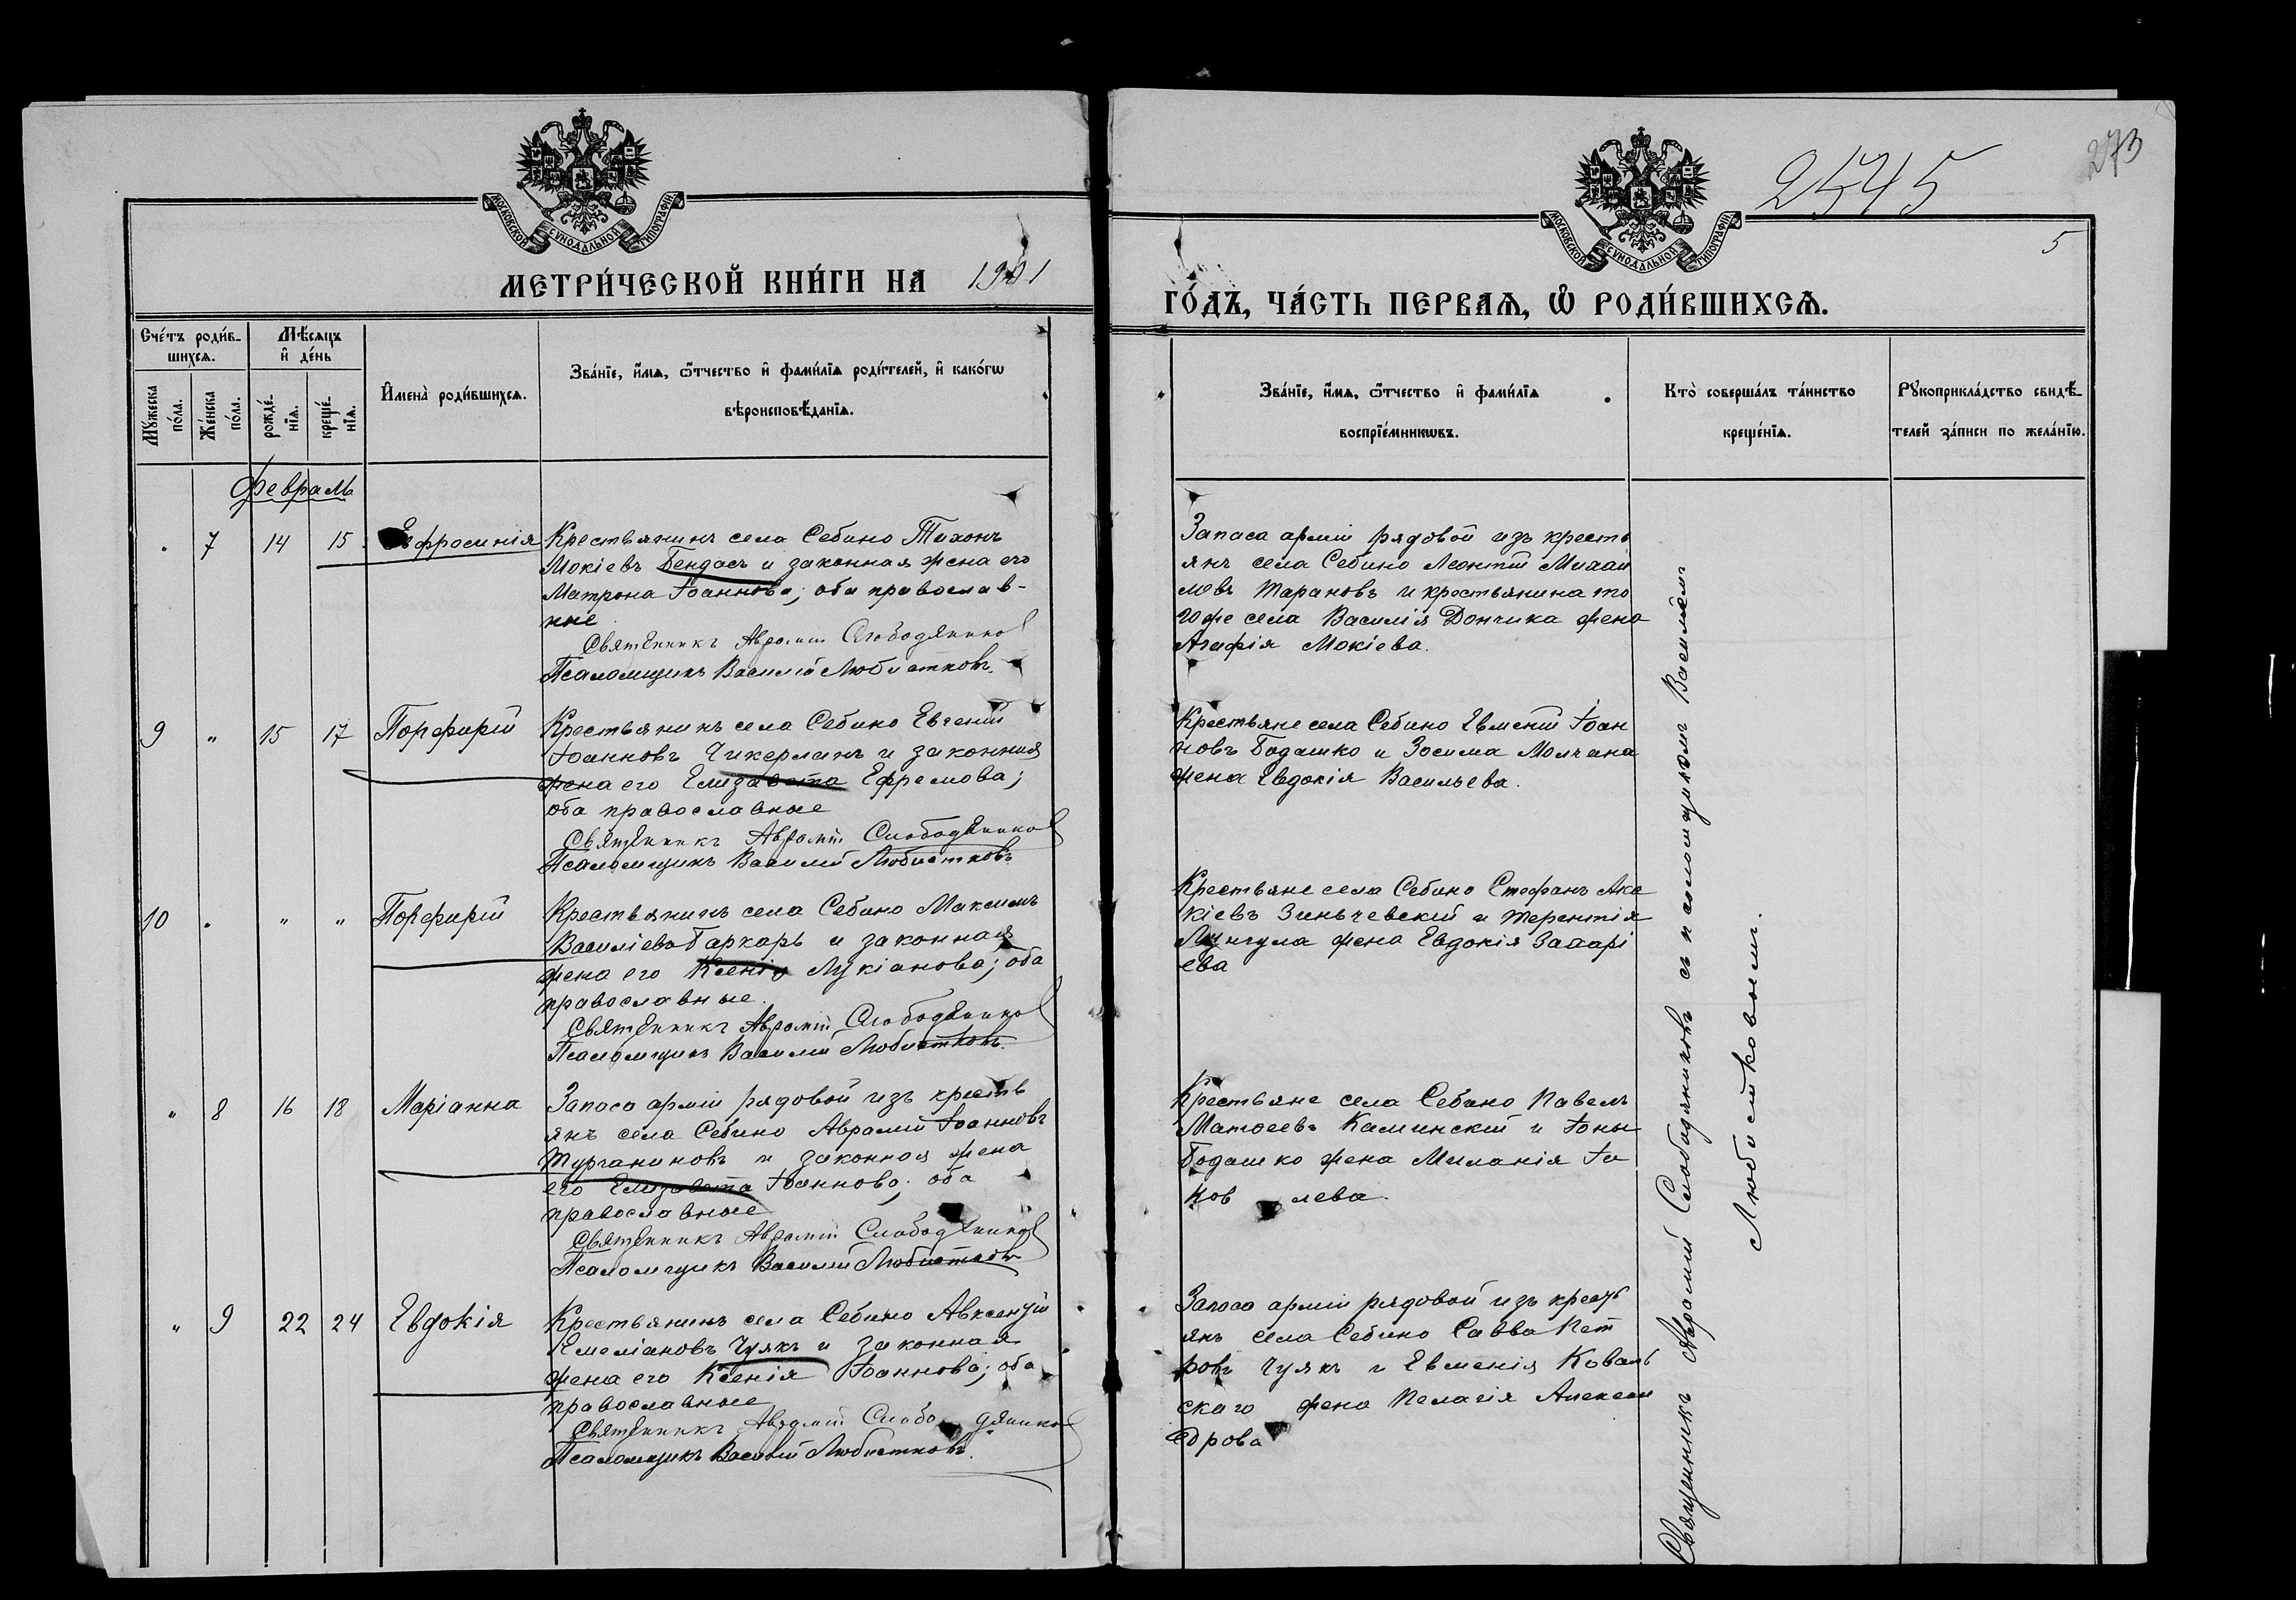 273
2545
5
МОСКОВСКОЙ СѴНОДАЛЬНОЙ ТИПОГРАФІИ
МОСКОВСКОЙ СѴНОДАЛЬНОЙ ТИПОГРАФІИ
МЕТРИ́ЧЕСКОЙ КНИ́ГИ НА 1901
ГО́ДЪ, ЧА́СТЬ ПЕРВАѦ, Ѡ҆ РОДИ́ВШИХСѦ.
Сче́тъ роди́в-
шихсѧ.
Мꙋ́жеска по́ла.
Же́нска по́ла.
Мѣ́сѧцъ
и҆ де́нь
рожде́-нїѧ.
креще́-нїѧ.
И҆мена̀ роди́вшихсѧ.
Зва́нїе, и҆́мѧ, ѻ҆́тчество и҆ фами́лїѧ роди́телей, и҆ како́гѡ
вѣроисповѣ́данїѧ.
Зва́нїе, и҆́мѧ, ѻ҆́тчество и҆ фами́лїѧ
воспрїе́мникѡвъ.
Кто̀ соверша́лъ та́инство
креще́нїѧ.
Рꙋкоприкла́дство свидѣ́-
телей за́писи по жела́нїю.
Февраль
" 7 14 15 Евфросинія
Крестьянинъ села Себино Тихонъ
Мокіевъ Бендасъ и законная жена его
Матрона Іоаннова; оба православ-
ные
Священникъ Аврамій Слободяников
Псаломщикъ Василій Любистковъ.
Запаса арміи рядовой изъ кресть
янъ села Себино Леонтій Михаи
ловъ Тарановъ и крестьянина то
гоже села Василія Дончика жена
Агафія Мокіева.
9 " 15 17 Порфирій
Крестьянинъ села Себино Евгеній
Іоанновъ Чикерланъ и законная
жена его Елизавета Ефремова;
оба православные
Священникъ Аврамій Слободяников
Псаломщикъ Василій Любистковъ
Крестьяне села Себино Евменій Іоан
новъ Бодашко и Зосима Молчана
жена Евдокія Васильева.
10 " " " Порфирій
Крестьянинъ села Себино Максимъ
Василіевъ Гаркарь и законная
жена его Ксенія Лукіанова; оба
православные.
Священникъ Аврамій Слободяников
Псаломщикъ Василій Любистковъ.
Крестьяне села Себино Стефанъ Ака
кіевъ Зиньчевскій и Терентія
жена Евдокія Захарі
ева
" 8 16 18 Маріанна
Запаса арміи рядовой изъ кресть
янъ села Себино Аврамій Іоанновъ
Турчаниновъ и законная жена
его Елизавета Іоаннова; оба
православные
Священникъ Аврамій Слободяников
Псаломщикъ Василій Любистковъ
Крестьяне села Себино Павелъ
Матѳеевъ Калинскій и Іоны
Бодашко жена Миланія Іа
ковлева.
" 9 22 24 Евдокія
Крестьянинъ села Себино Авксентій
Емеліановъ Чуякъ и законная
жена его Ксенія Іоаннова; оба
православные
Священникъ Аврамій Слободяников
Псаломщикъ Василій Любистковъ.
Запаса арміи рядовой изъ кресть
янъ села Себино Савва Пет
ровъ Чуякъ и Евменія Коваль
скаго жена Пелагія Алексан
дрова
Священникъ Аврамій Слободяниковъ съ псаломщикомъ Василіемъ
Любистковымъ.